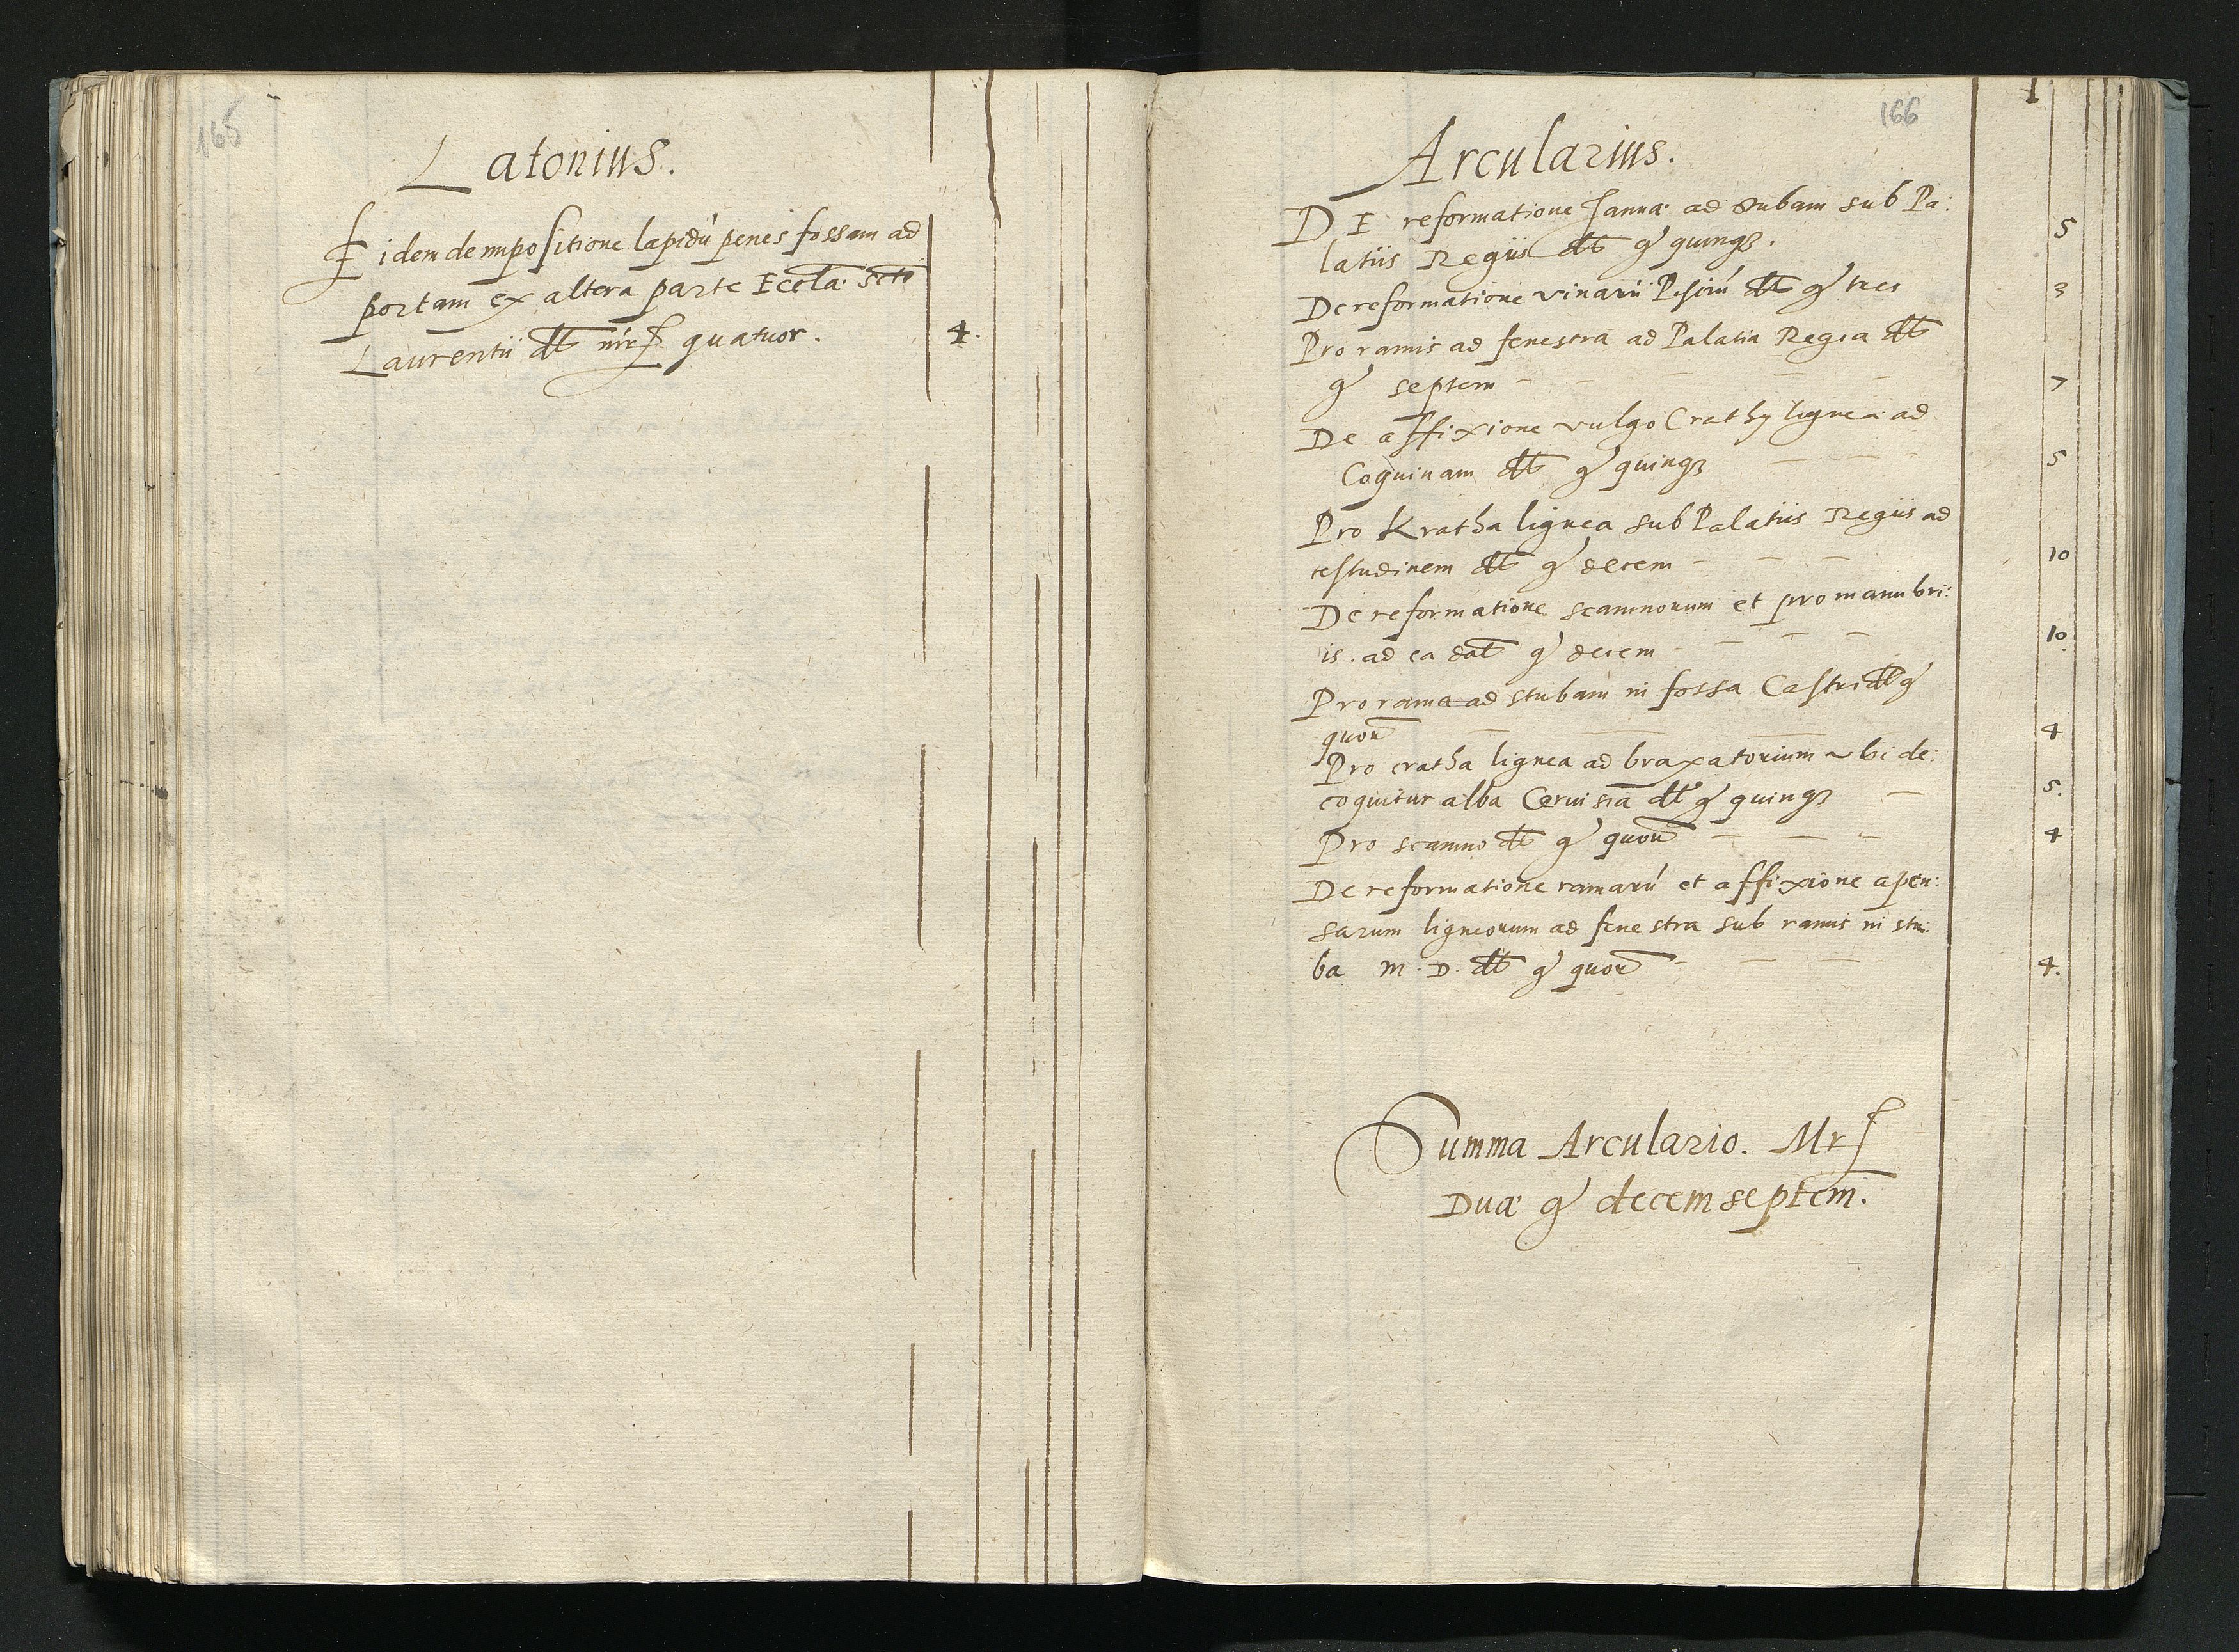 165
Latonius.
Eidem de impositione lapidū penes fossam ad
portam ex altera parte Eccła: Scti
Laurentii dt mrƒ quatuor. 4.
166
1
Arcularius.
DE reformatione Januæ ad stubam sub Pa:
latiis Regiis dt gͬ quinqꝫ. 5
De reformatione vinarii dt gͬ tres 3
Pro ramis ad fenestra ad Palatia Regia dt
gͬ septem 7
De affixione vulgo Crathy lignea ad
Coquinam dt gͬ quinqꝫ 5
Pro Kratha lignea sub Palatiis Regiis ad
testudinem dt gͬ decem 10
De reformatione scamnorum et pro manubri:
is. ad ea dat gͬ decem 10.
Pro rama ad stubam in fossa Castri dt gͬ
quor 4
Pro cratha lignea ad braxatorium ubi de:
coquitur alba Cervisia dt gͬ quinqꝫ 5.
Pro scamno dt gͬ quor 4
De reformatione ramarū et affixione apen:
sarum ligneorum ad fenestra sub ramis in stu:
ba M. D. dt gͬ quor 4.
Summa Arculario. Mrƒ
Duæ gͬ decem septem.